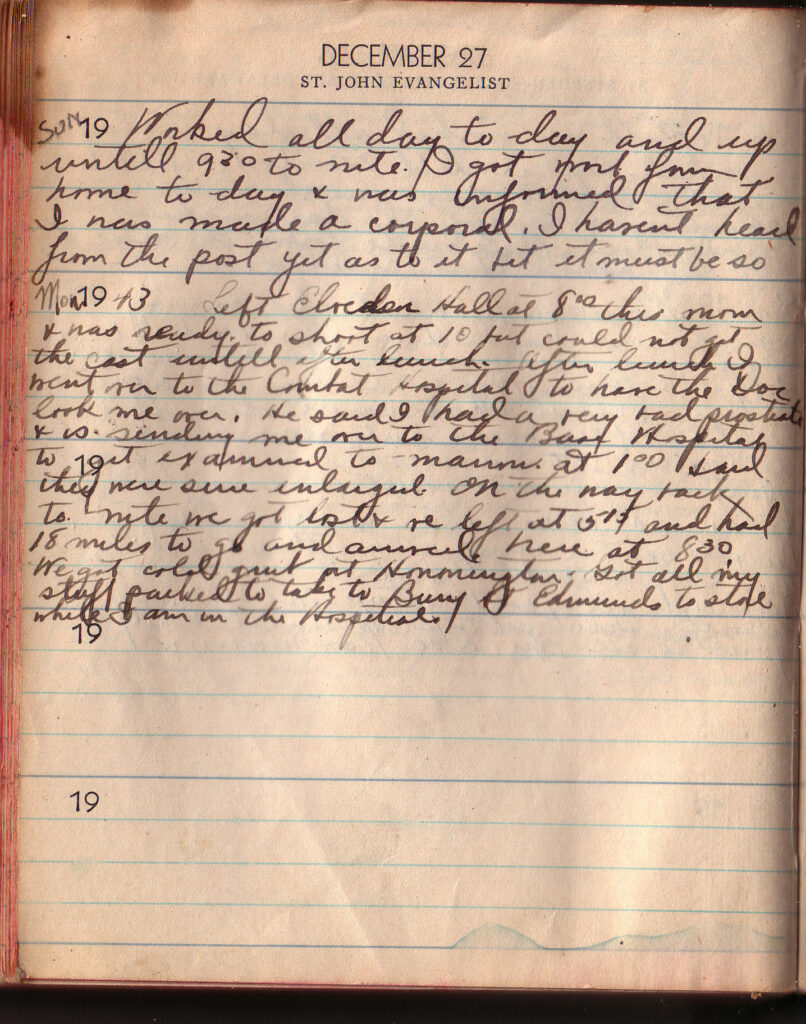 DECEMBER 27
ST. JOHN EVANGELIST
SUN 19 Worked all day to day and up
untill 9 30 to nite. I got word from
home to day & was informed that
I was made a corporal. I havent heard
from the post yet as to it but it must be so
Mon 19 43 Left Elveden Hall at 8 00 this morn
& was ready to shoot at 10 but could not get
the cast untill after lunch. After lunch I
went over to the Combat Hospital to have the Doc
look me over. He said I had a very bad prostate
& is sending me over to the Base Hospital
to get examined to-morrow at 1 00 said
19
they were sure enlarged On the way back
to nite we got lost & we left at 5 15 and had
18 miles to go and arrived here at 8 30
We got cold grub at Honnington. Got all my
stuff packed to take to Bury St Edmunds to store
while I am in the Hospital.
19
19